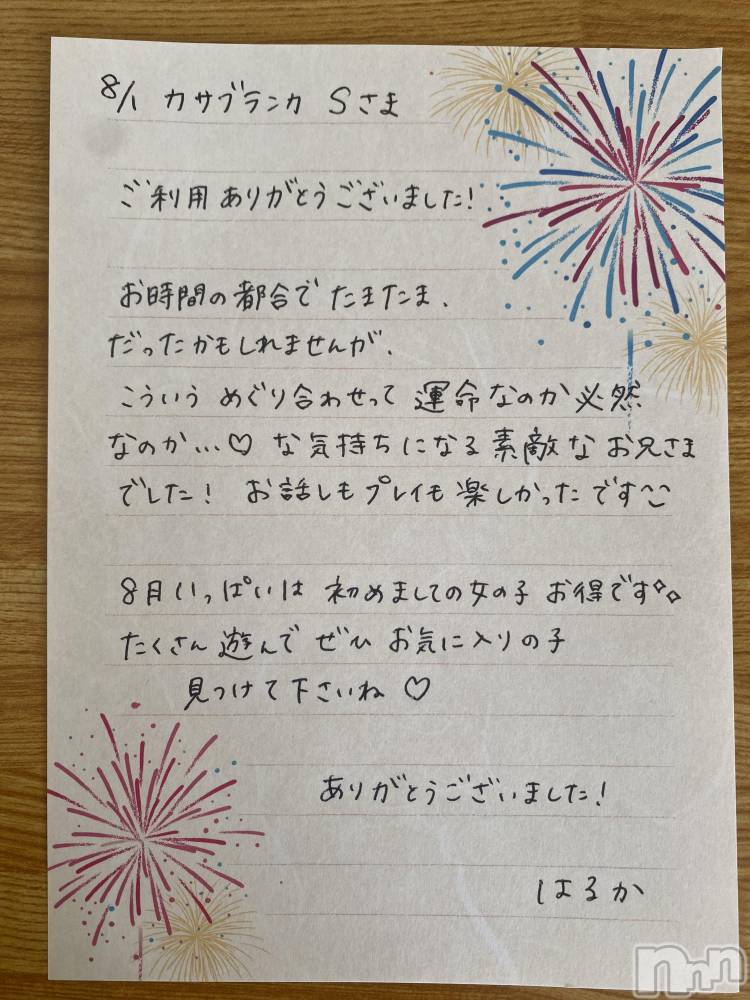 8/1 カサブランカ Sさま
ご利用ありがとうございました!
お時間の都合でたまたま、
だったかもしれませんが、
こういう めぐり合わせって 運命なのか必然
なのか…♡ な気持ちになる素敵なお兄さま
でした! お話しもプレイも楽しかったです^^
8月いっぱいは 初めましての女の子 お得です✧✧
たくさん遊んで ぜひ お気に入りの子
見つけて下さいね♡
ありがとうございました!
はるか
nnn